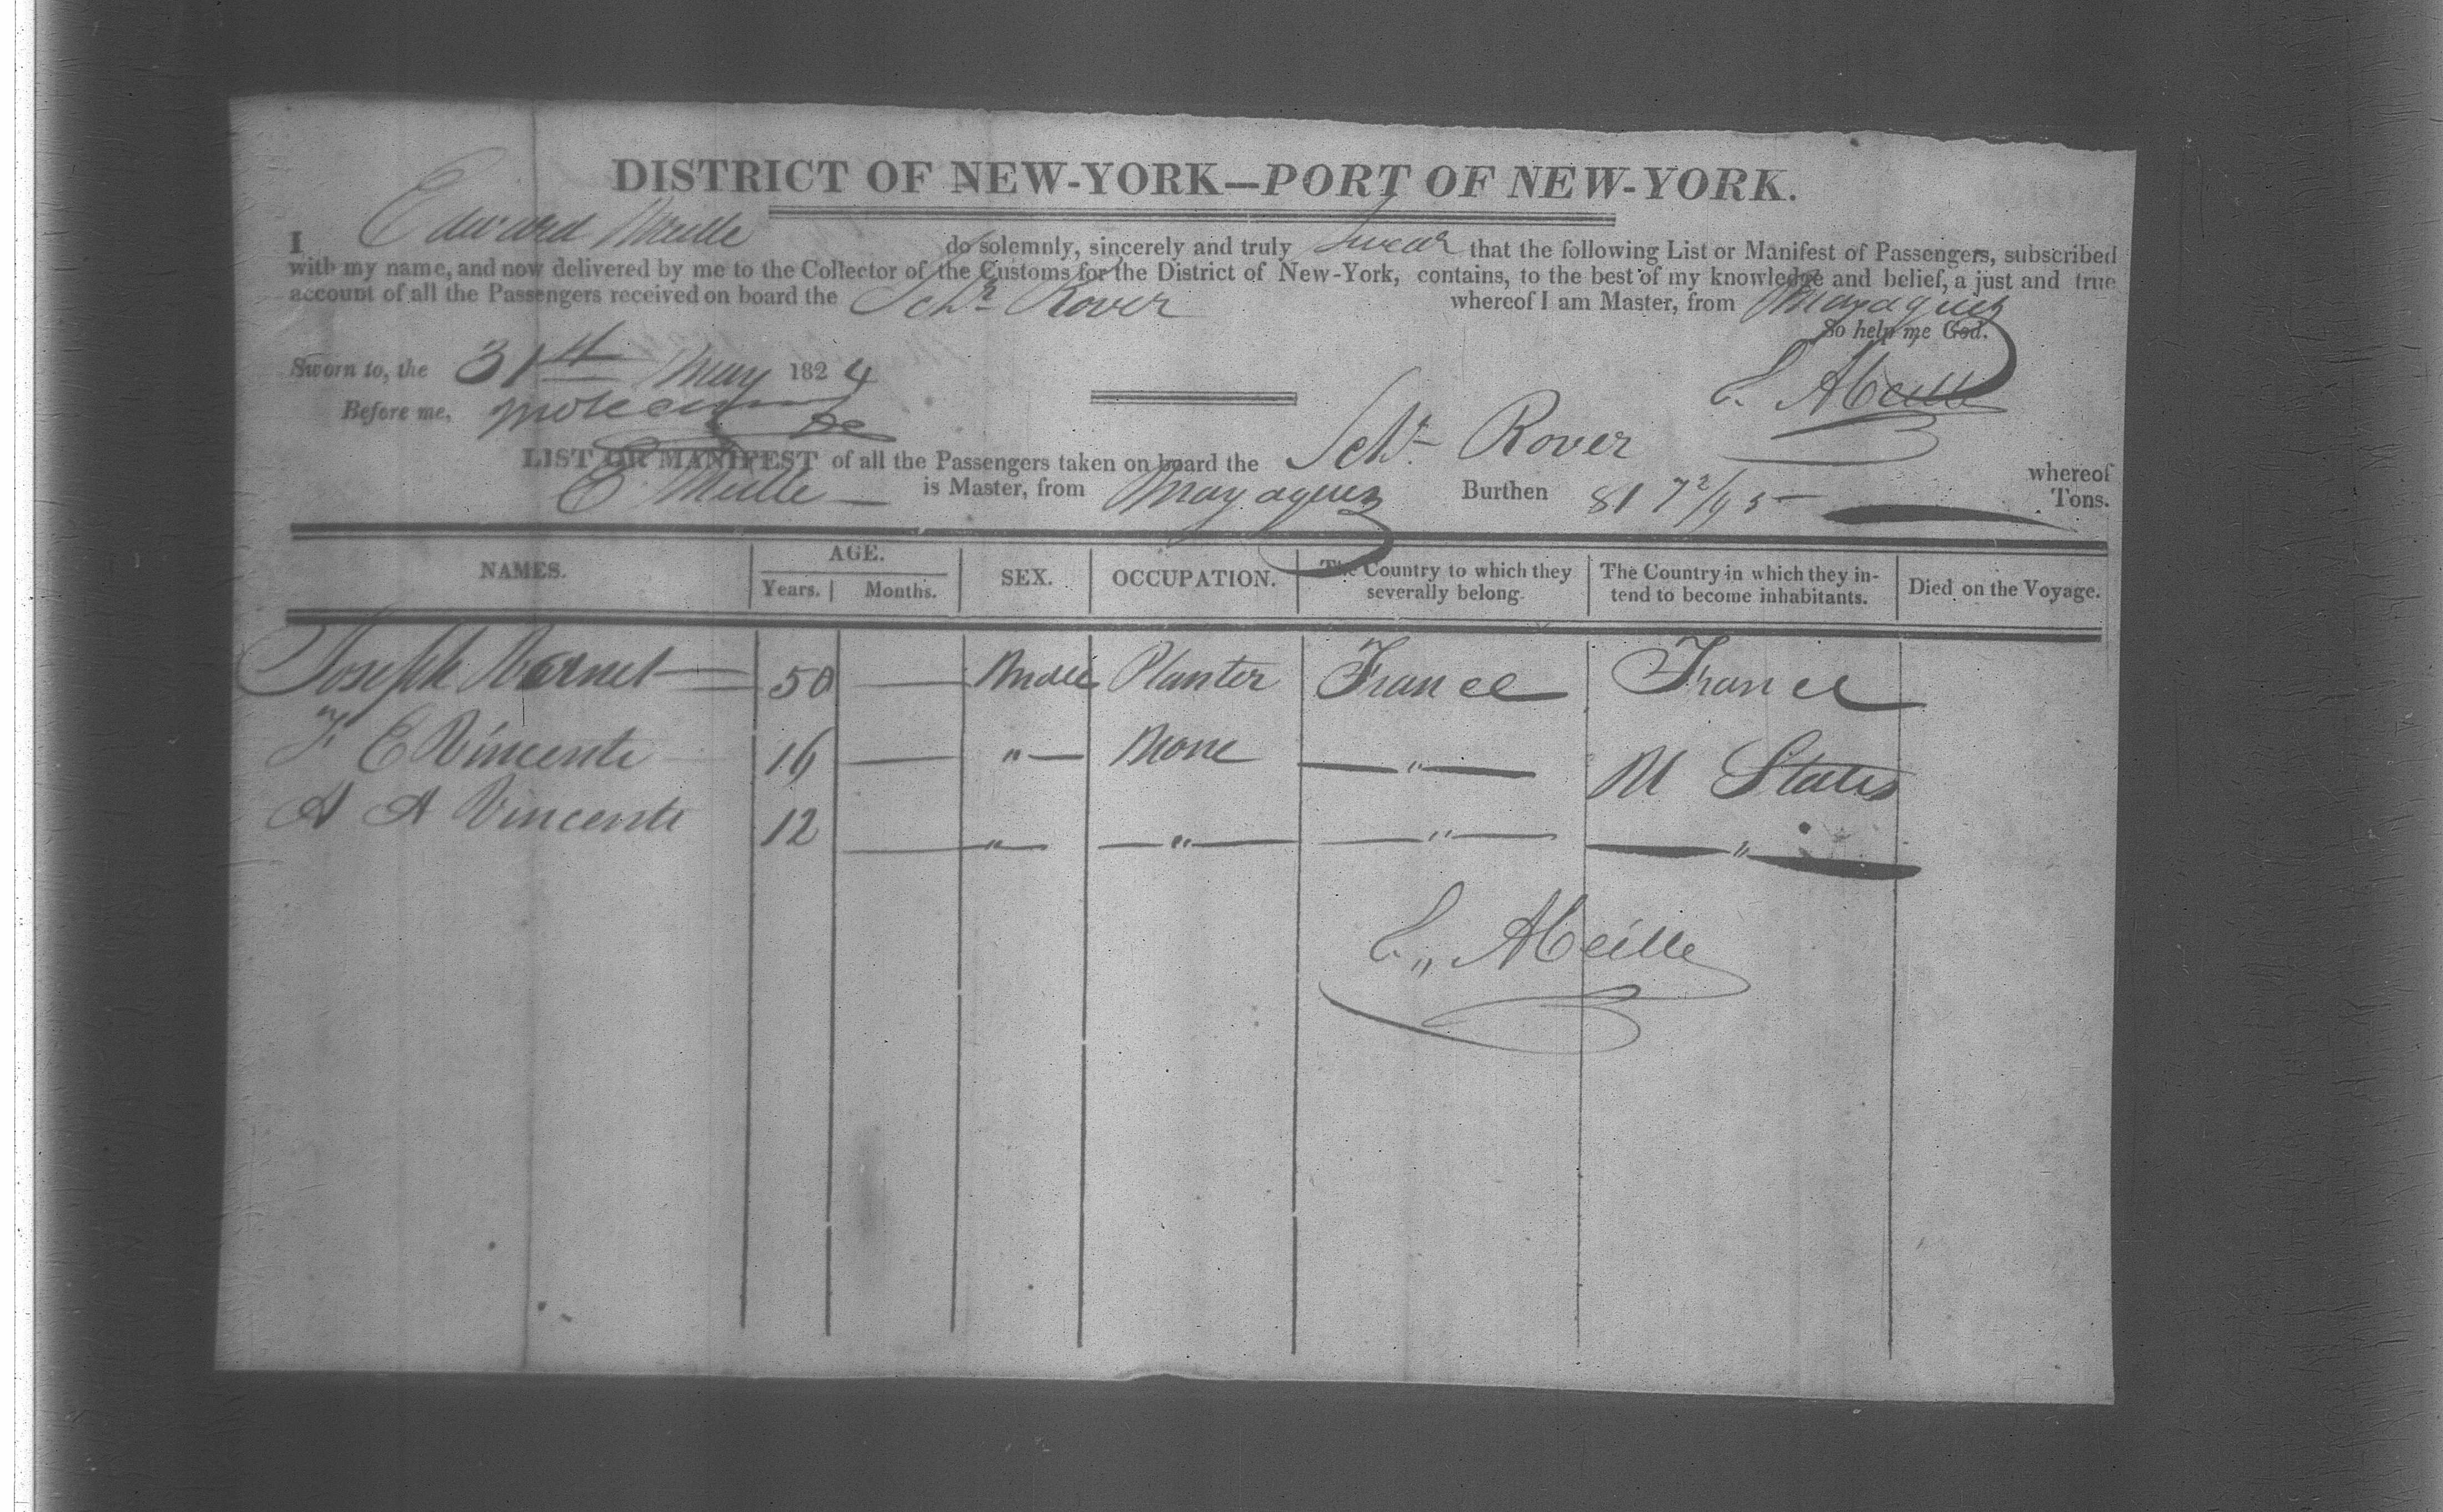 DISTRICT OF NEW-YORK—PORT OF NEW-YORK.
I Edward Meille do solemnly, sincerely and truly Swear that the following List or Manifest of Passengers, subscribed
with my name, and now delivered by me to the Collector of the Customs for the District of New-York, contains, to the best of my knowledge and belief, a just and true
account of all the Passengers received on board the Schr Rover whereof I am Master, from Mayaguez
So help me God.
Sworn to, the 31st May 1824
E. Meille
Before me,
LIST OR MANIFEST of all the Passengers taken on board the Schr Rover whereof
E Meille is Master, from Mayaguez Burthen 81 72/95 Tons.
NAMES. AGE. Years. Months. SEX. OCCUPATION. The Country to which they severally belong. The Country in which they intend to become inhabitants. Died on the Voyage.
Joseph 50 — Male Planter France France
F E Vincente 16 — "— None —"— U States
A A Vincente 12 —"— —"— —"— —"—
E. Meille